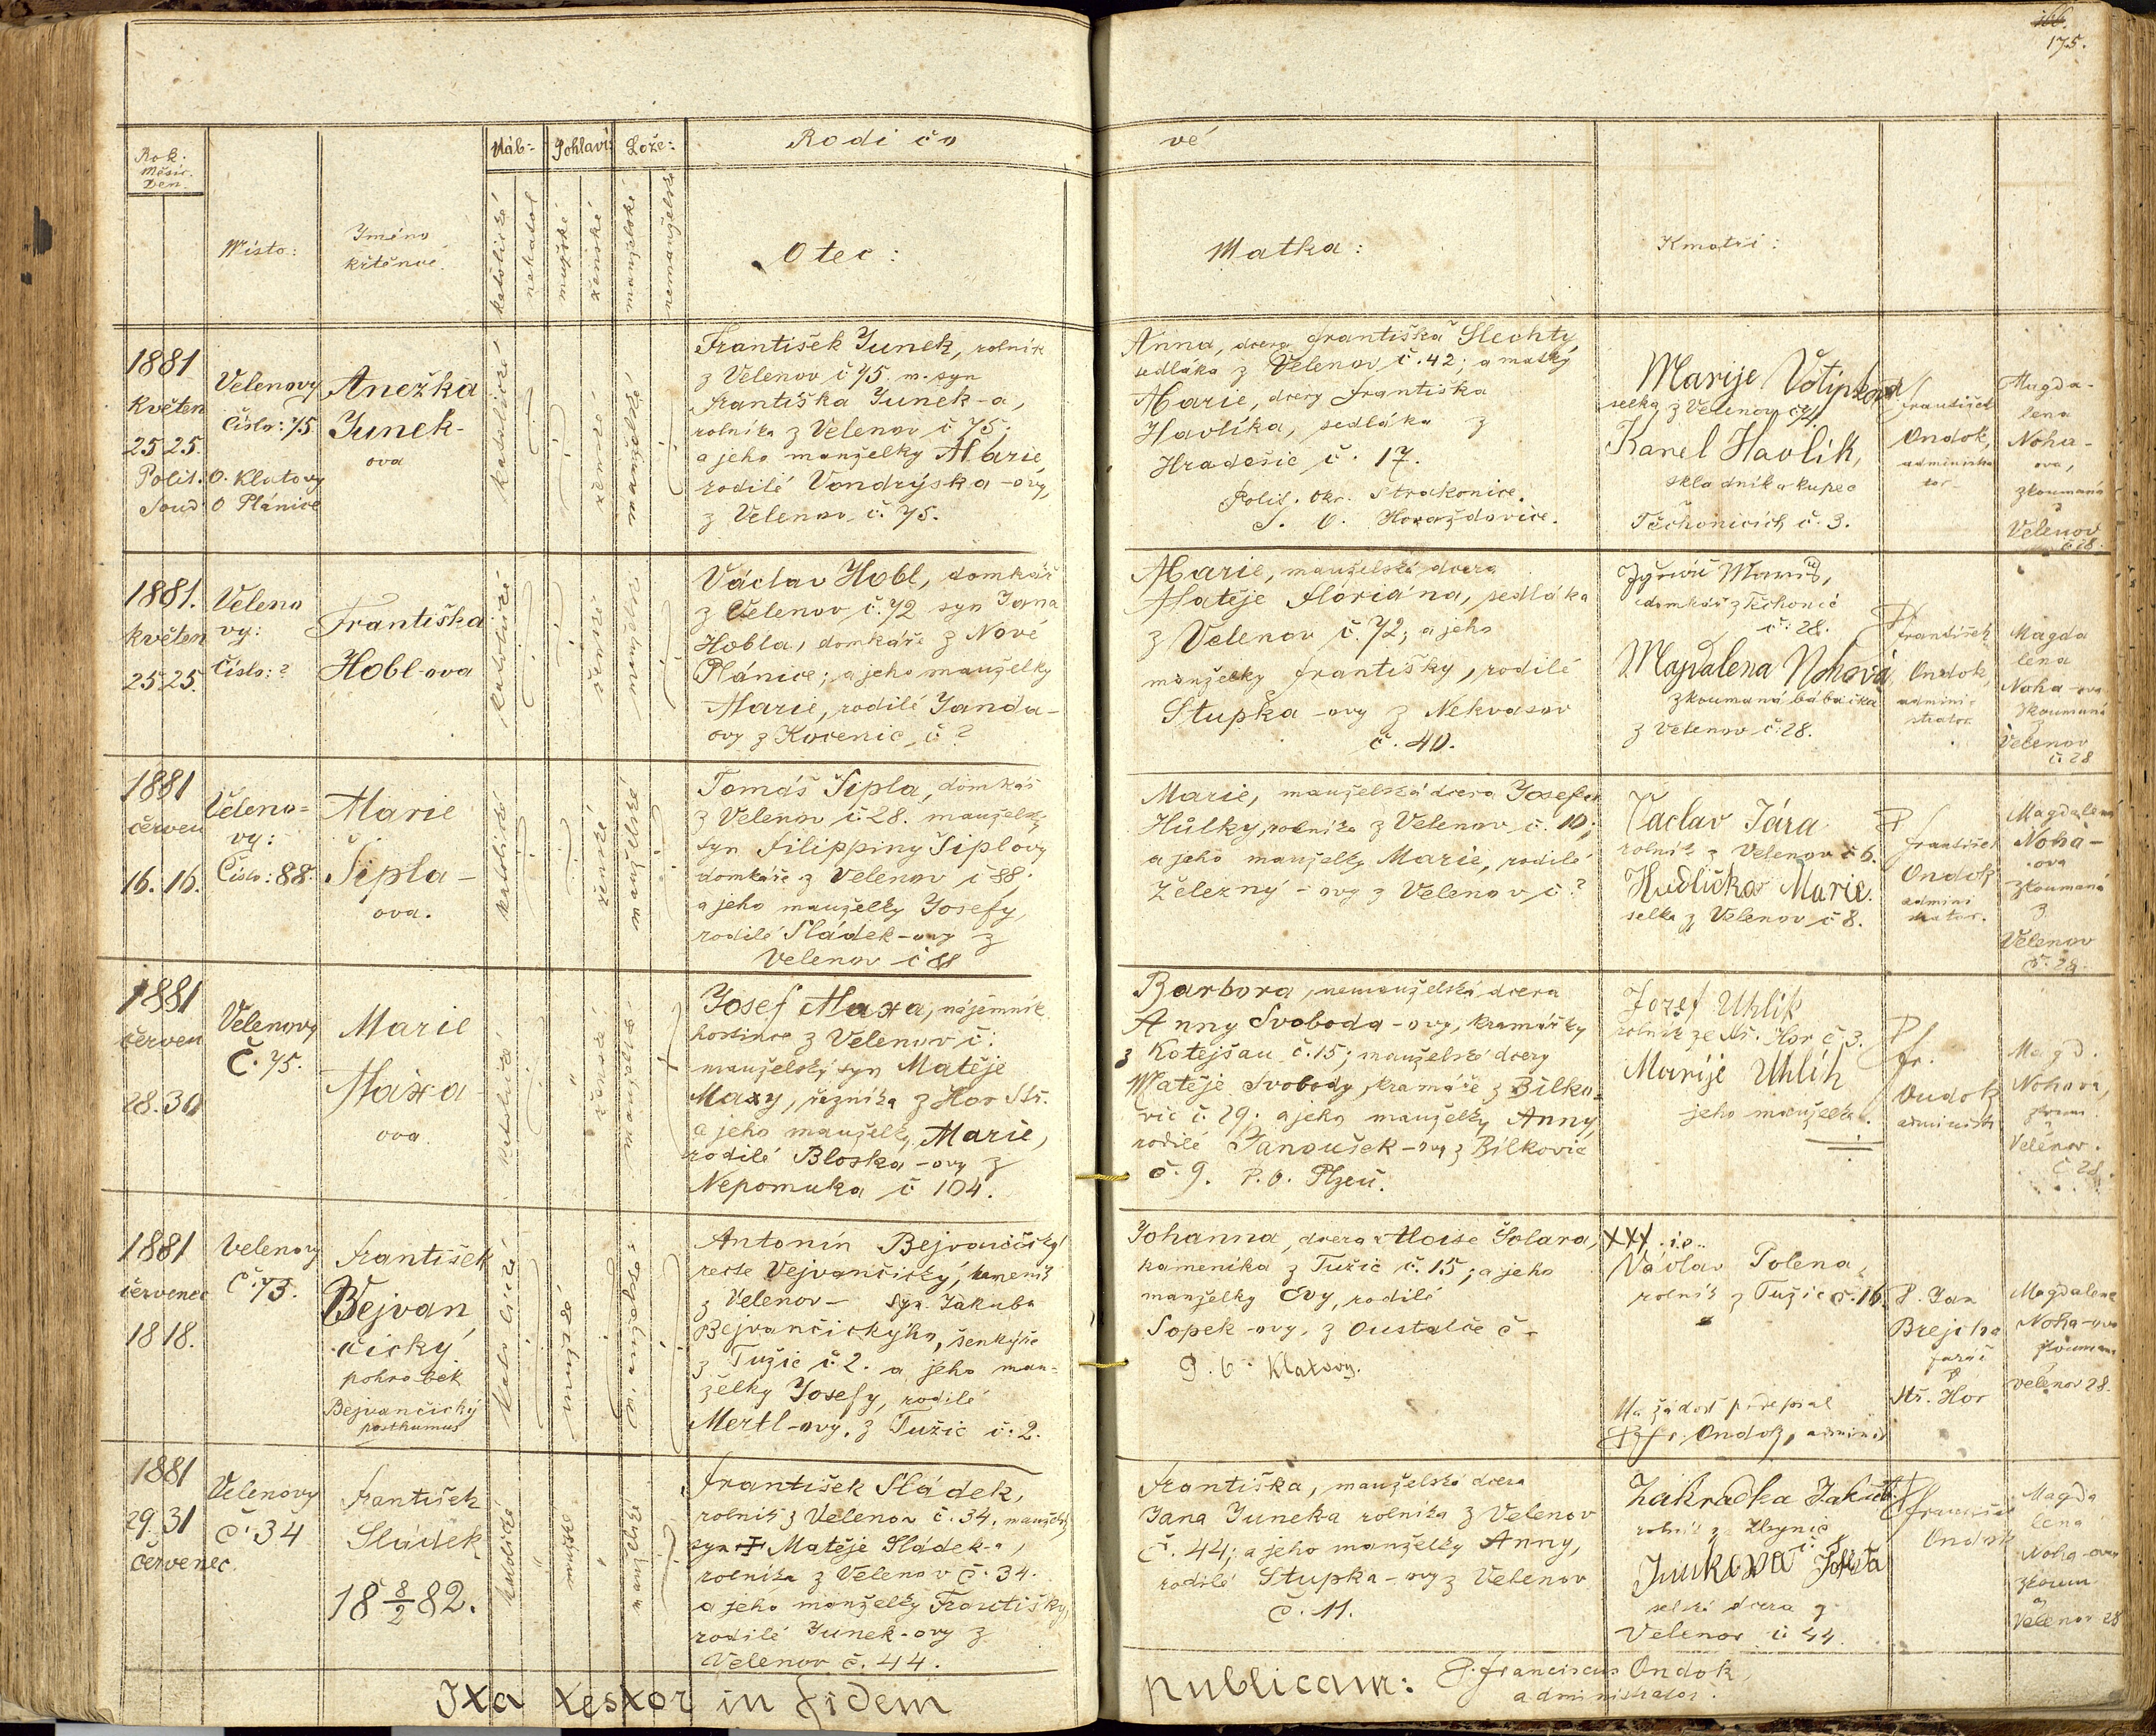 166.
175.
Rok:
Měsíc.
Den.
Místo:
Jméno
křtěncē.
Náb:
katolické
nekatol
Pohlaví:
mužské
ženské
Lože:
manželské
nemanželské
Rodičo
vé
Otec:
Matka:
Kmotři:
1881
Květen
25 25.
Polit. O. Klatovy
Soud O Plánice
Velenovy
Číslo: 75.
Anežka
Junek-
ova
katolické
ženské
manželské
František Junek, rolník
z Velenov č 75, m. syn
Františka Junek-a,
rolníka z Velenov č 75;
a jeho manželky Marie,
rodilé Vondryska-ovy,
z Velenov č. 75.
Anna, dcera Františka Šlechty,
sedláka z Velenov č. 42; a matky
Marie, dcery Františka
Havlíka, sedláka z
Hradešic č. 17.
Polit. Okr. Strakonice.
S. O. Horažďovice.
Marije Votipkova
selka z Velenov č 21.
Karel Havlik,
skladník a kupec
Těchonicích č. 3.
P
František
Ondok,
administra
tor
Magda-
lena
Noha-
ova,
zkoumaná
z
Velenov
č 28.
1881.
květen
25 25.
Veleno
vy:
Číslo: ?
Františka
Hobl-ova
katolické
ženské
manželské
Václav Hobl, domkář
z Velenov č. 72 syn Jana
Hobla, domkáře z Nové
Plánice; a jeho manželky
Marie, rodilé Janda-
ovy z Kocenic č ?
Marie, manželská dcera
Matěje Floriána, sedláka
z Velenov č. 72; a jeho
manželky Františky, rodilé
Stupka-ovy z Nekvasov
č. 40.
domkář z Těchonic
č: 28.
Magdalena Nohová
zkoumaná bábaička
z Velenov č: 28.
P
František
Ondok,
admini
strator
Magda
lena
Noha-ova
zkoumaná
z
Velenov
č 28
1881
červen
16. 16.
Veleno=
vy:
Číslo: 88.
Marie
Šipla-
ova.
katolické
ženské
manželské
Tomáš Šipla, domkář
z Velenov č. 28. manželský
syn Filippiny Šiplovy
domkáře z Velenov č 88.
a jeho manželky Josefy,
rodilé Sládek-ovy z
Velenov č 88
Marie, manželská dcera Josefa
Hůlky, rolníka z Velenov č. 10;
a jeho manželky Marie, rodilé
Železný-ovy z Velenov č ?
Václav Jára
rolník z Velenov č 6.
Hudličkov Marie.
selka z Velenov č 8.
P
František
Ondok
admini
strator.
Magdalena
Noha-
ova
zkoumaná
z
Velenov
č. 28.
1881
červen
28. 30
Velenovy
Č. 75.
Marie
Maxa-
ova.
katolické
ženské
manželské
Josef Maxa, nájemník
hostince z Velenov č:
manželský syn Matěje
Maxy, řezníka z Hor Stř.
a jeho manželky, Marie,
rodilé Bloska-ovy z
Nepomuka č 104.
Barbora, nemanželská dcera
Anny Svoboda-ovy, kramářky
z Kotejšau č. 15; manželské dcery
Matěje Svobody, kramáře z Bilko-
vic č. 29; a jeho manželky Anny,
rodilé Janoušek-ovy z Bilkovic
č. 9. P. O. Plzeň.
Jozef Uhlik
rolník ze Stř. Hor č 3.
Marije Uhlik
jeho manželka.
P
Fr.
Ondok
administr
Magd.
Nohová,
zkoum.
z
Velenov.
č 28.
1881
červenec
18 18.
Velenovy
Č. 73.
František
Bejvan
čický
pohrobek
Bejvančický
posthumus
katolické
mužské
manželské
Antonín Bejvančický
recte Vejvančický, kameník
z Velenov— syn Jakuba
Bejvančickýho, šenkýře
z Tužic č. 2. a jeho man-
želky Josefy, rodilé
Mertl-ovy. z Tužic č. 2.
Johanna, dcera Aloise Šolara,
kameníka z Tužic č. 15; a jeho
manželky Evy, rodilé
Sopek-ovy, z Oustalče č-
P. O. Klatovy.
XXX.
Václav Polena,
rolník z Tužic č. 16.
Na žádost podepsal
P Fr. Ondok, administ
P. Jan
Brejcha
farář
Stř. Hor
Magdalena
Noha-ova
zkoumaná
z
Velenov 28.
1881
29. 31
červenec.
Velenovy
č. 34
František
Sládek
18 8/2 82.
katolické
mužské
manželské
František Sládek,
rolník z Velenov č. 34. manželský
syn Matěje Sládek-a,
rolníka z Velenov č. 34.
a jeho manželky Františky,
rodilé Junek-ovy z
Velenov č. 44.
Františka, manželská dcera
Jana Juneka rolníka z Velenov
č. 44; a jeho manželky Anny,
rodilé Stupka-ovy z Velenov
č. 11.
Zahradka Jakub.
rolník z Zbynic
č. 8
Junkova Josefa
selská dcera z
Velenov č. 44.
P
František
Ondok
Magda
lena
Noha-ova
zkoum
z
Velenov 28
Ita testor in fidem
publicam: P. Franciscus Ondok,
administrator.